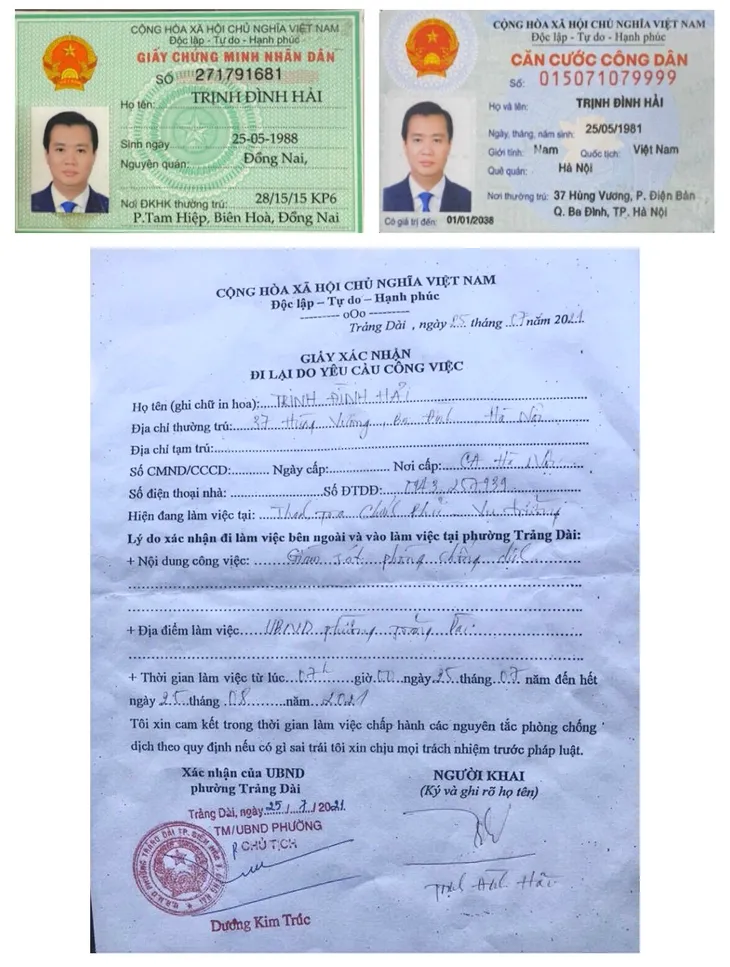 CỘNG HÒA XÃ HỘI CHỦ NGHĨA VIỆT NAM
Độc lập - Tự do - Hạnh phúc
GIẤY CHỨNG MINH NHÂN DÂN
SỐ 271791681
Họ tên: TRỊNH ĐÌNH HẢI
Sinh ngày 25-05-1988
Nguyên quán: Đồng Nai,
Nơi ĐKHK thường trú: 28/15/15 KP6
P.Tam Hiệp, Biên Hoà, Đồng Nai
CỘNG HÒA XÃ HỘI CHỦ NGHĨA VIỆT NAM
Độc lập - Tự do - Hạnh phúc
CĂN CƯỚC CÔNG DÂN
Số: 015071079999
Họ và tên: TRỊNH ĐÌNH HẢI
Ngày, tháng, năm sinh: 25/05/1981
Giới tính: Nam Quốc tịch: Việt Nam
Quê quán: Hà Nội
Nơi thường trú: 37 Hùng Vương, P. Điện Bàn
Q. Ba Đình, TP. Hà Nội
Có giá trị đến: 01/01/2038
CỘNG HÒA XÃ HỘI CHỦ NGHĨA VIỆT NAM
Độc lập – Tự do – Hạnh phúc
oOo
Trảng Dài , ngày 25 tháng 07 năm 2021
GIẤY XÁC NHẬN
ĐI LẠI DO YÊU CẦU CÔNG VIỆC
Họ tên (ghi chữ in hoa): TRỊNH ĐÌNH HẢI
Địa chỉ thường trú: 37 Hùng Vương, Ba Đình Hà Nội
Địa chỉ tạm trú:
Số CMND/CCCD: Ngày cấp: Nơi cấp: CA Hà Nội
Số điện thoại nhà: Số ĐTDĐ: 0913 257939
Hiện đang làm việc tại: Thanh tra Chính Phủ Vụ trưởng
Lý do xác nhận đi làm việc bên ngoài và vào làm việc tại phường Trảng Dài:
+ Nội dung công việc: Giám sát phòng chống dịch
+ Địa điểm làm việc UBND phường Trảng Dài
+ Thời gian làm việc từ lúc 07h giờ 00 ngày 25 tháng 07 năm đến hết
ngày 25 tháng 08 năm 2021
Tôi xin cam kết trong thời gian làm việc chấp hành các nguyên tắc phòng chống
dịch theo quy định nếu có gì sai trái tôi xin chịu mọi trách nhiệm trước pháp luật.
Xác nhận của UBND
phường Trảng Dài
Trảng Dài, ngày 25/7/2021
TM/UBND PHƯỜNG
P CHỦ TỊCH
Dương Kim Trúc
NGƯỜI KHAI
(Ký và ghi rõ họ tên)
Trịnh Đình Hải